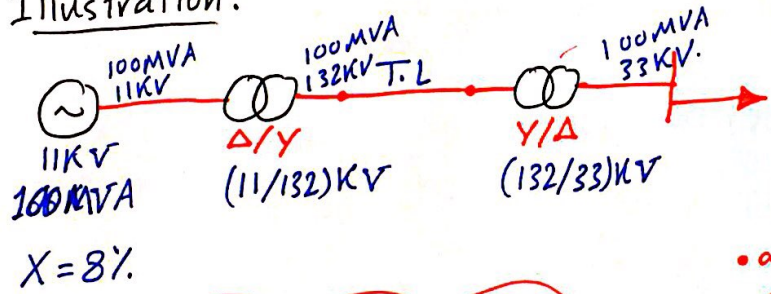 Illustration:
100MVA
11KV
100MVA
132KV T.L
100MVA
33KV.
~
Δ/Y
Y/Δ
11KV
100MVA
(11/132)KV
(132/33)KV
X=8%.